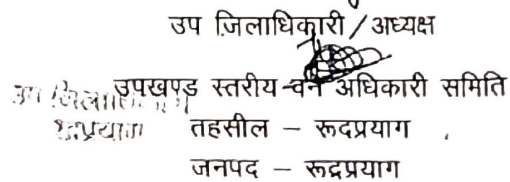 उप जिलाधिकारी / अध्यक्ष
उपखण्ड स्तरीय वन अधिकारी समिति
तहसील – रूदप्रयाग
जनपद – रूद्रप्रयाग